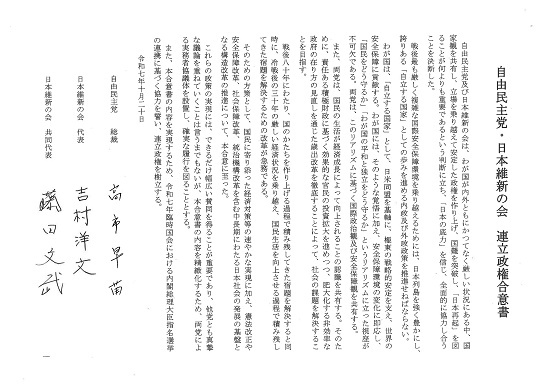 自由民主党・日本維新の会 連立政権合意書
自由民主党及び日本維新の会は、わが国が内外ともにかつてなく厳しい状況にある中、国
家観を共有し、立場を乗り越えて安定した政権を作り上げ、国難を突破し、「日本再起」を図
ることが何よりも重要であるという判断に立ち、「日本の底力」を信じ、全面的に協力し合う
ことを決断した。
戦後最も厳しく複雑な国際安全保障環境を乗り越えるためには、日本列島を強く豊かにし、
誇りある「自立する国家」としての歩みを進める内政及び外政政策を推進せねばならない。
わが国は、「自立する国家」として、日米同盟を基軸に、極東の戦略的安定を支え、世界の
安全保障に貢献する。わが国には、そのような覚悟に加え、安全保障環境の変化に即応し、
「国民をどう守るか」「わが国の平和と独立をどう守るか」というリアリズムに立った視座が
不可欠である。両党は、このリアリズムに基づく国際政治観及び安全保障観を共有する。
また、両党は、国民の生活が経済成長によって向上されることの認識を共有する。そのた
めに、責任ある積極財政に基づく効果的な官民の投資拡大を進めつつ、肥大化する非効率な
政府の在り方の見直しを通じた歳出改革を徹底することによって、社会の課題を解決するこ
とを目指す。
戦後八十年にわたり、国のかたちを作り上げる過程で積み残してきた宿題を解決すると同
時に、冷戦後の三十年の厳しい経済状況を乗り越え、国民生活を向上させる過程で積み残し
てきた宿題を解決するための改革が急務である。
そのための方策として、国民に寄り添った経済対策等の速やかな実現に加え、憲法改正や
安全保障改革、社会保障改革、統治機構改革を含む中長期にわたる日本社会の発展の基盤と
なる構造改革の推進について、本合意に至った。
これらの政策の実現には、できるだけ幅広い賛同を得ることが重要であり、他党とも真摯
な議論を重ねていくことは言うまでもないが、本合意書の内容を精緻化するため、両党によ
る実務者協議体を設置し、確実な履行を図ることとする。
また、本合意書の内容を実現するため、令和七年臨時国会における内閣総理大臣指名選挙
の連携に基づく協力を誓い、連立政権を樹立する。
令和七年十月二十日
自由民主党 総裁 高市早苗
日本維新の会 代表 吉村洋文
日本維新の会 共同代表 藤田文武
一